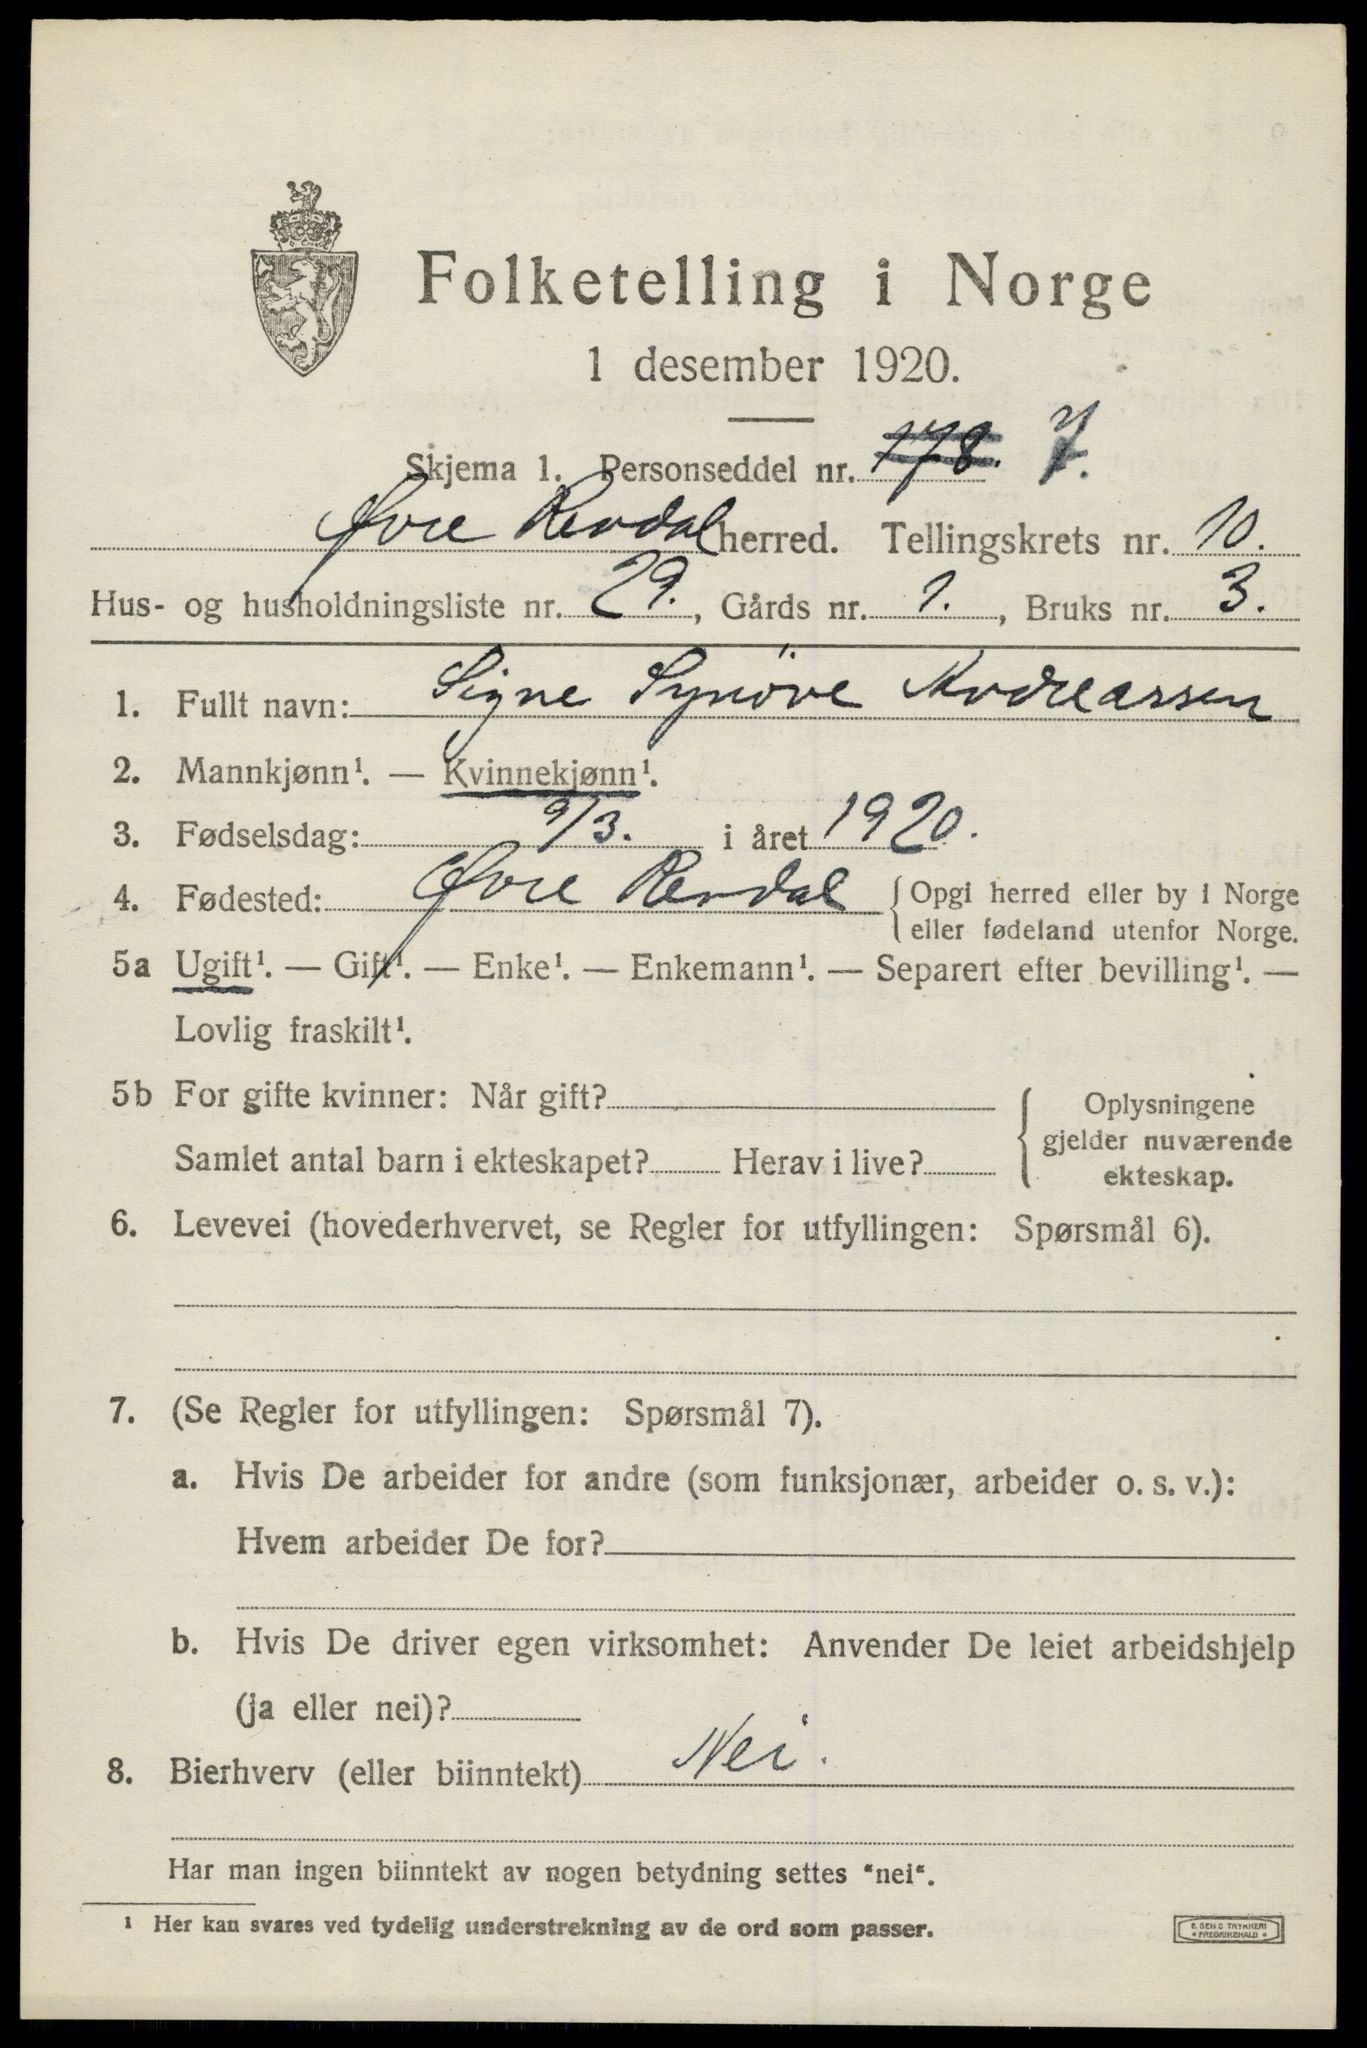 Folketelling i Norge
1 desember 1920.
Skjema 1. Personseddel nr. 178. 7.
Øvre Rendal herred. Tellingskrets nr. 10.
Hus- og husholdningsliste nr. 29., Gårds nr. 1., Bruks nr. 3.
1. Fullt navn: Signe Synöve Andreassen
2. Mannkjønn¹. — Kvinnekjønn¹.
3. Fødselsdag: 9/3. i året 1920.
4. Fødested: Øvre Rendal { Opgi herred eller by i Norge
eller fødeland utenfor Norge.
5a Ugift¹. — Gift¹. — Enke¹. — Enkemann¹. — Separert efter bevilling¹. —
Lovlig fraskilt¹.
5b For gifte kvinner: Når gift? { Oplysningene
gjelder nuværende
Samlet antal barn i ekteskapet? Herav i live?
ekteskap.
6. Levevei (hovederhvervet, se Regler for utfyllingen: Spørsmål 6).
7. (Se Regler for utfyllingen: Spørsmål 7).
a. Hvis De arbeider for andre (som funksjonær, arbeider o. s. v.):
Hvem arbeider De for?
b. Hvis De driver egen virksomhet: Anvender De leiet arbeidshjelp
(ja eller nei)?
8. Bierhverv (eller biinntekt) Nei.
Har man ingen biinntekt av nogen betydning settes “nei“.
¹ Her kan svares ved tydelig understrekning av de ord som passer.
E. SEM'S TRYKKERI
• FREDRIKSHALD •